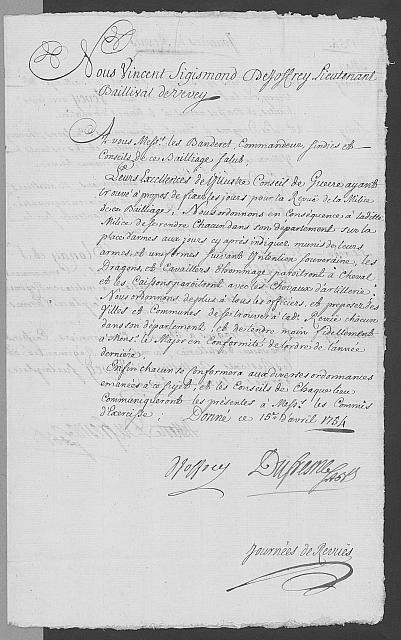 Nous Vincent Sigismond DeJoffrey Lieutenant
Baillival de Vevey
A vous Mess.rs les Banderet, Commandeur, sindics et
Conseils de ce Bailliage salut,
Leurs Excellences de l'illustre Conseil de Guerre ayant
trouvé à propos de fixer les jours pour la Revuë de la Milice
de ce Bailliage; Nous ordonnons en Conséquence à ladite
Milice de se rendre Chacun dans son département sur la
place d'armes aux jours cy après indiquez munis de leurs
armes, et uniformes suivant l'Intention souveraine, les
Dragons, et Cavailliers d'hommage paroîtront à Cheval
et les Caissons paroitront avec les Chevaux d'artillerie;
Nous ordonnons de plus à tous les officiers, et préposez des
Villes et Communes de se trouver à lad.e Revuë chacun
dans son département, et de tendre main fidellement
à Mons.r le Major en Conformité de l'ordre de l'année
derniere.
Enfin chacun se conformera aux diverses ordonnances
emanées à ce sujet, et les Conseils de Chaque lieu
Communiqueront les présentes à Mess.rs les Commis
d'Exercise; Donné ce 15.e d'avril 1754
Joffrey Dufresne
Journées de Revuës